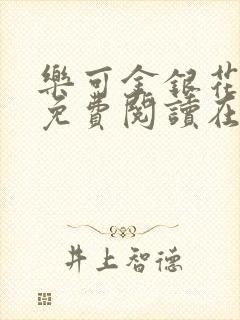 樂可金銀花
免費閱讀在
井上智德